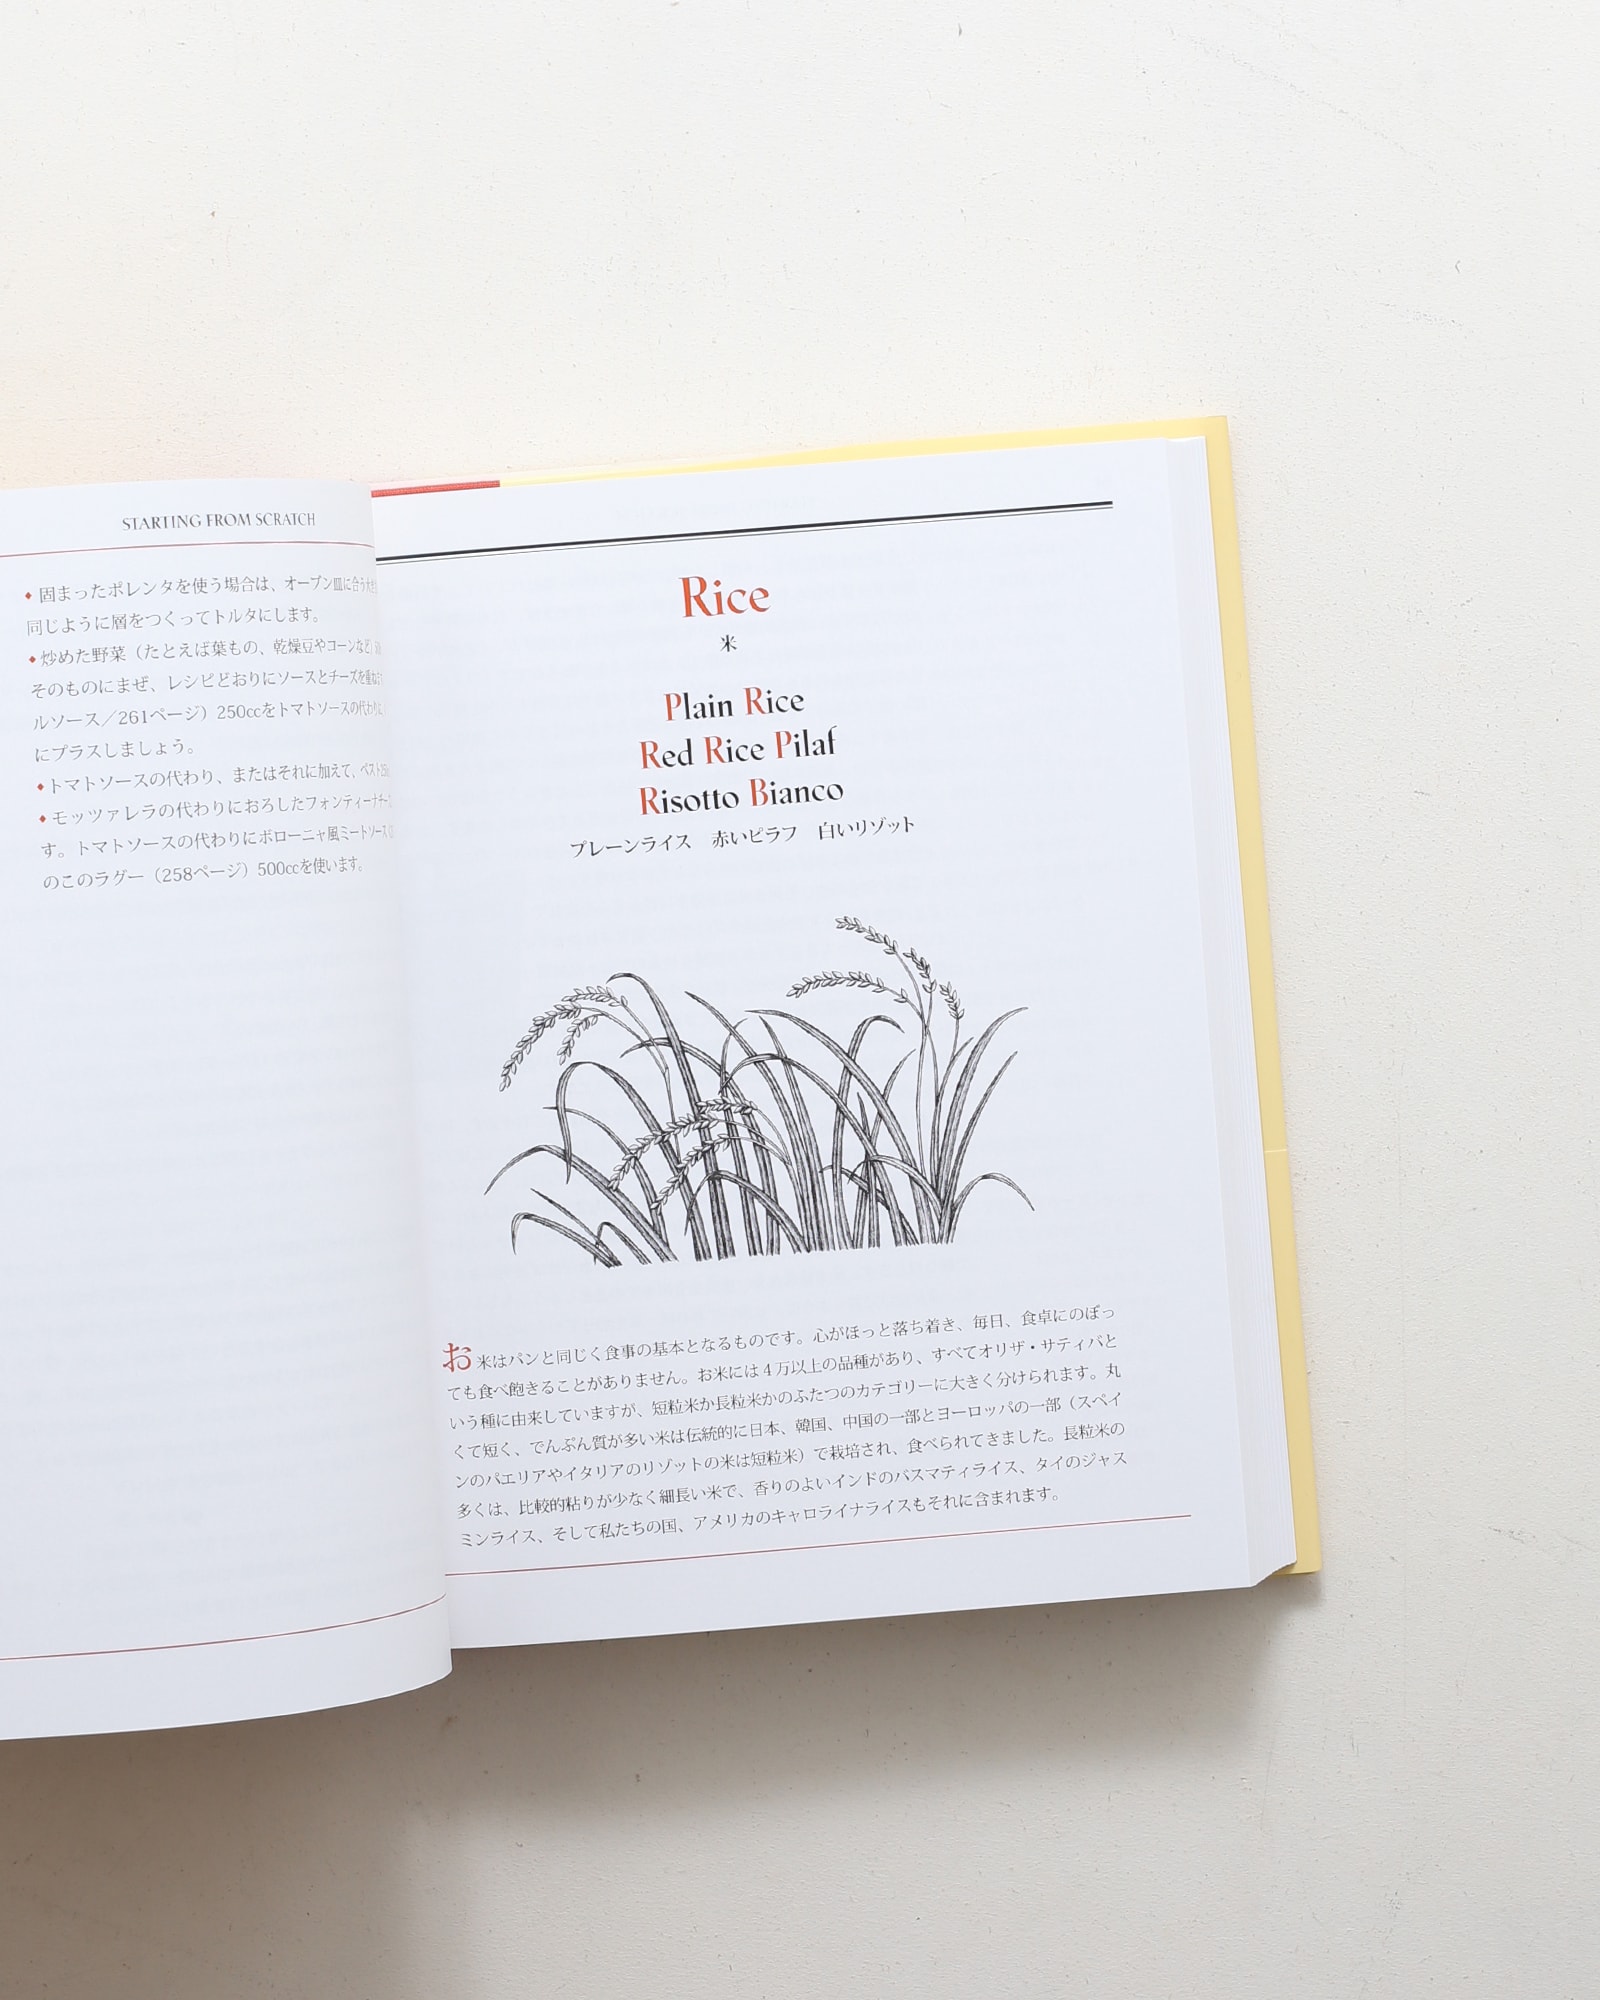 STARTING FROM SCRATCH
◆固まったポレンタを使う場合は、オーブン皿に合う大き
同じように層をつくってトルタにします。
◆炒めた野菜（たとえば葉もの、乾燥豆やコーンなど）
そのものにまぜ、レシピどおりにソースとチーズを重ね
ルソース／261ページ）250ccをトマトソースの代わりに
にプラスしましょう。
◆トマトソースの代わり、またはそれに加えて、ペスト
◆モッツァレラの代わりにおろしたフォンティーナチー
す。トマトソースの代わりにボローニャ風ミートソース
のこのラグー（258ページ）500ccを使います。
Rice
米
Plain Rice
Red Rice Pilaf
Risotto Bianco
プレーンライス　赤いピラフ　白いリゾット
お米はパンと同じく食事の基本となるものです。心がほっと落ち着き、毎日、食卓にのぼっ
ても食べ飽きることがありません。お米には4万以上の品種があり、すべてオリザ・サティバと
いう種に由来していますが、短粒米か長粒米かのふたつのカテゴリーに大きく分けられます。丸
くて短く、でんぷん質が多い米は伝統的に日本、韓国、中国の一部とヨーロッパの一部（スペイ
ンのパエリアやイタリアのリゾットの米は短粒米）で栽培され、食べられてきました。長粒米の
多くは、比較的粘りが少なく細長い米で、香りのよいインドのバスマティライス、タイのジャス
ミンライス、そして私たちの国、アメリカのキャロライナライスもそれに含まれます。